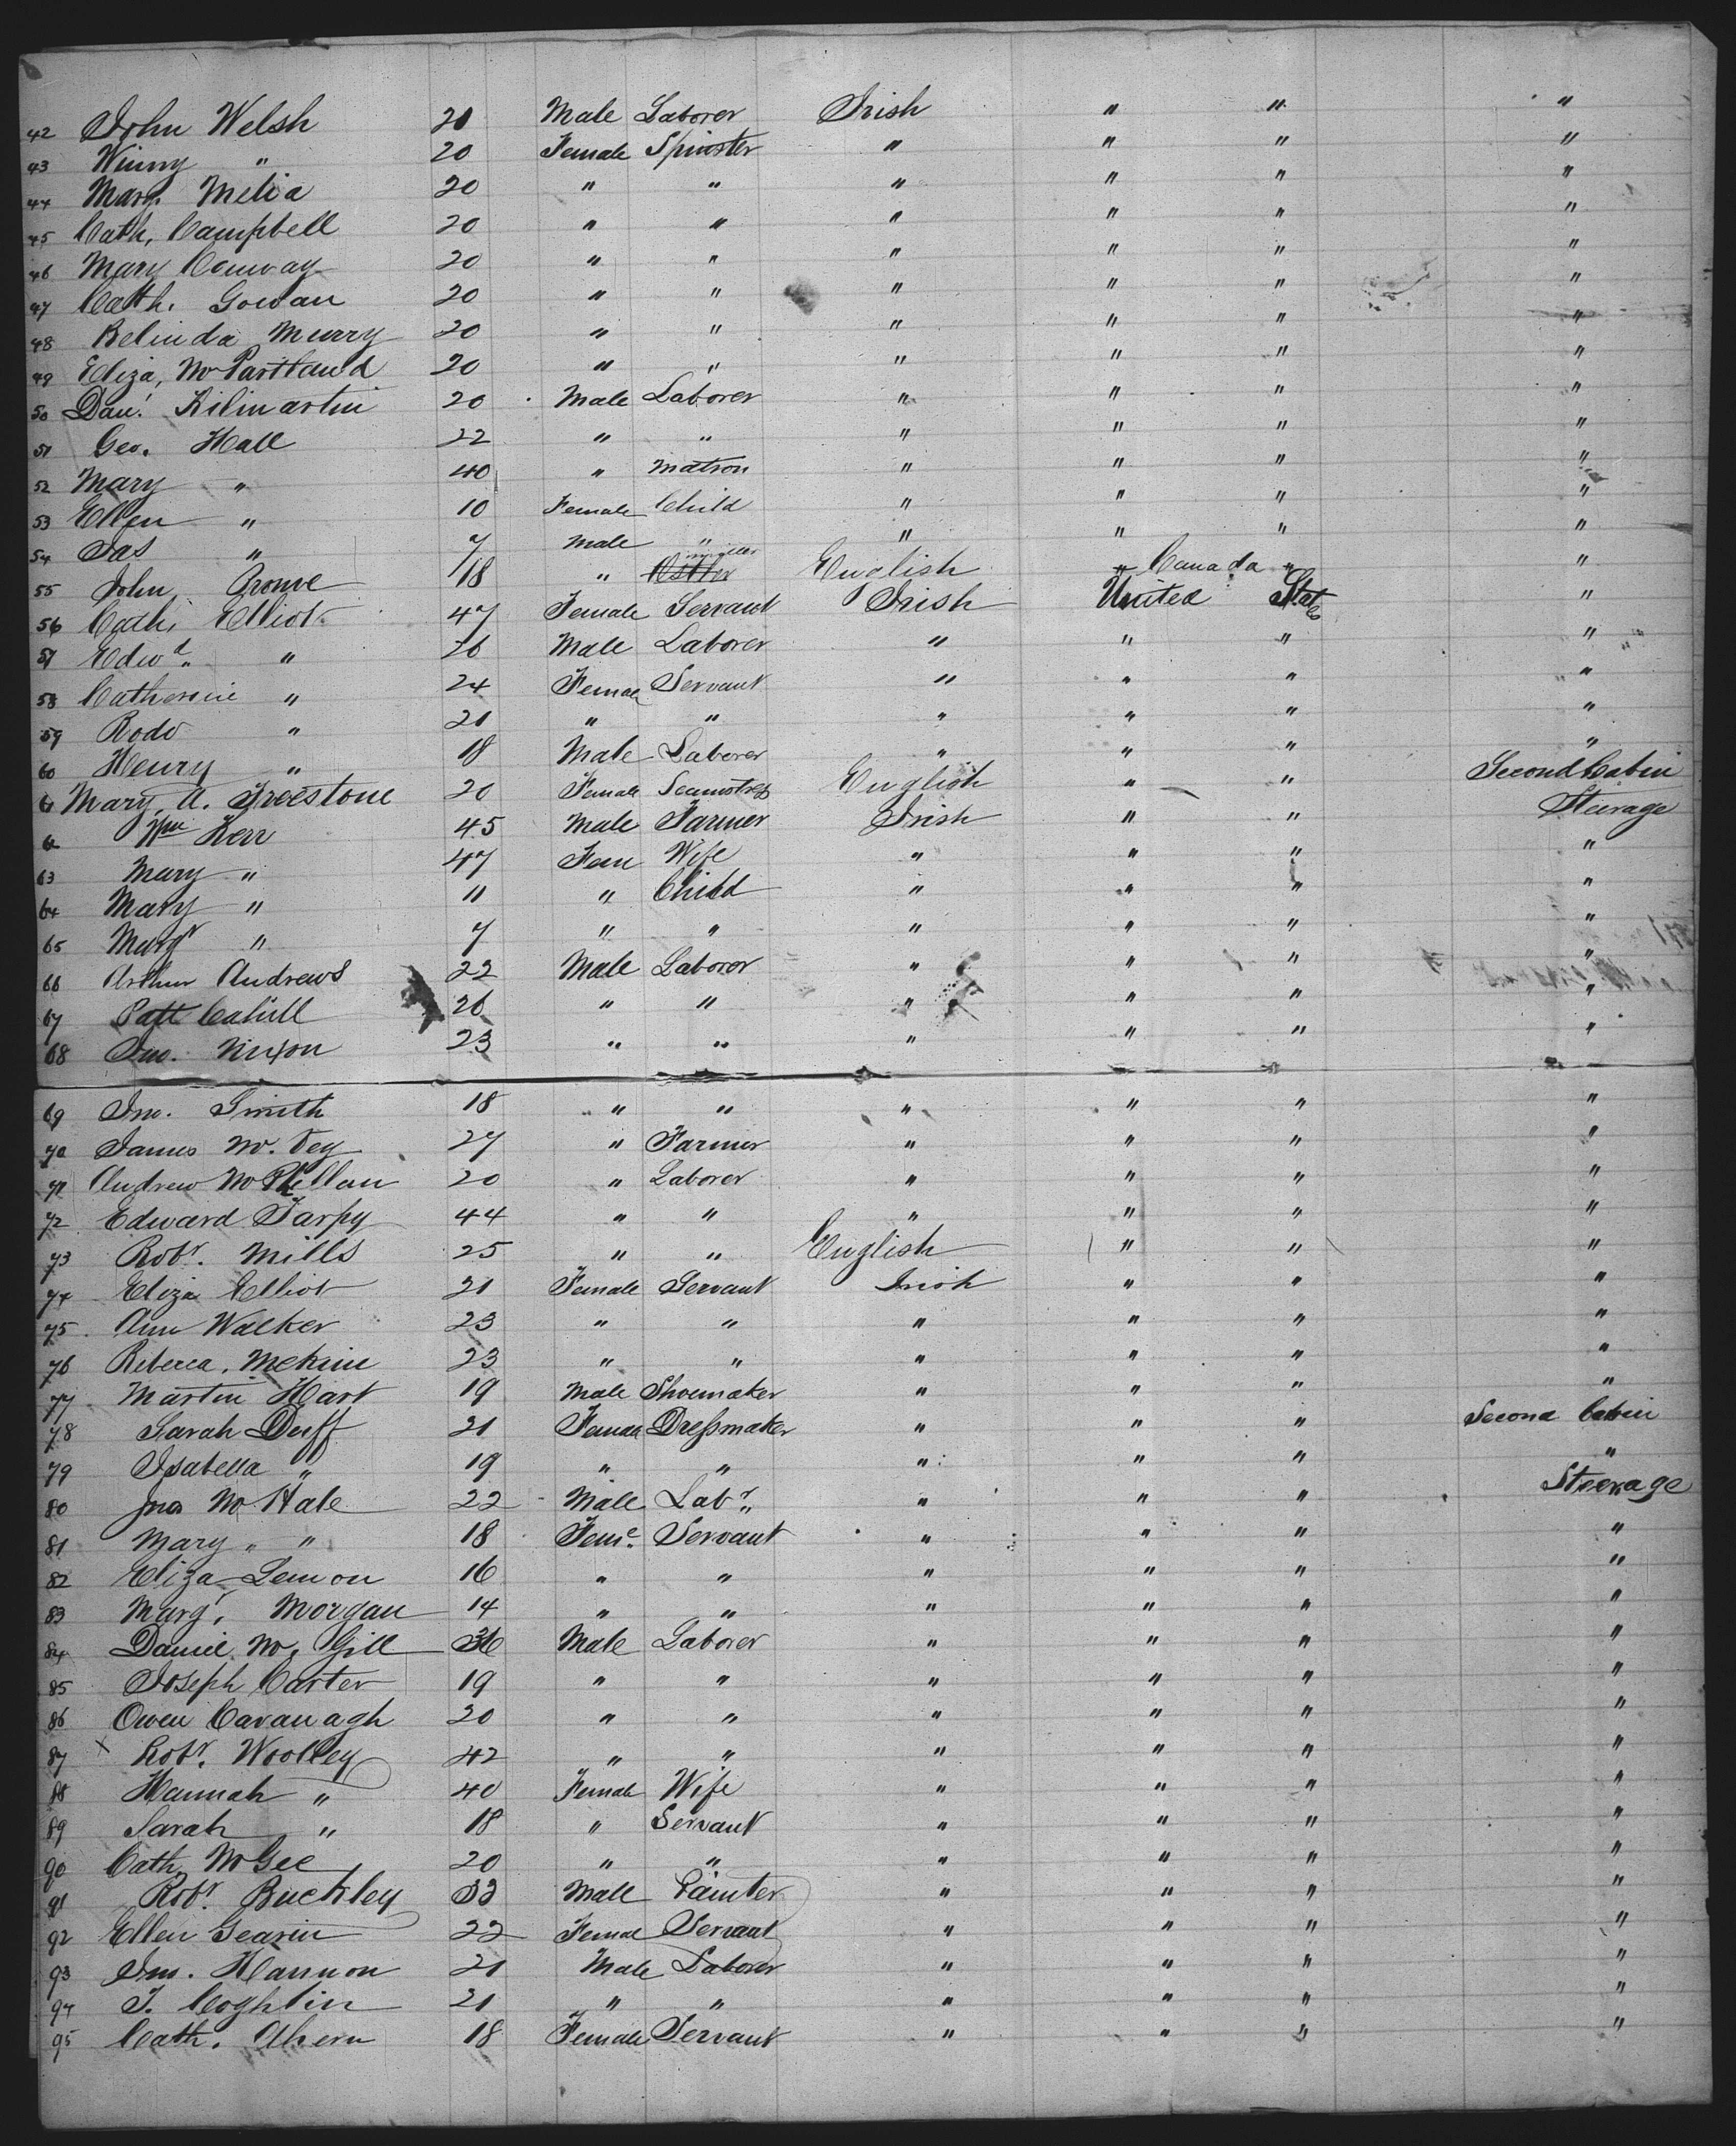 42 John Welsh 21 Male Laborer Irish " " "
43 Winny " 20 Female Spinster " " " "
44 Mary Melia 20 " " " " " "
45 Cath. Campbell 20 " " " " " "
46 Mary Conway 20 " " " " " "
47 Cath. Gowan 20 " " " " " "
48 Belinda Murry 20 " " " " " "
49 Eliza, McPartland 20 " " " " " "
50 Danl. Kilmartin 20 Male Laborer " " " "
51 Geo. Hall 22 " " " " " "
52 Mary " 40 " Matron " " " "
53 Ellen " 10 Female Child " " " "
54 Jas " 7 Male " " " " "
55 John 18 " English " Canada " "
56 Cath. Elliot 47 Female Servant Irish United States "
57 Edwd. " 26 Male Laborer " " " "
58 Catherine " 24 Female Servant " " " "
59 Rodo " 21 " " " " " "
60 Henry " 18 Male Laborer " " " "
61 Mary. A. Freestone 20 Female Seamstress English " " Second Cabin
62 Wm Kerr 45 Male Farmer Irish " " Steerage
63 Mary " 47 Fem Wife " " " "
64 Mary " 11 " Child " " " "
65 Margt " 7 " " " " " "
66 Arthur Andrews 22 Male Laborer " " " "
67 Patt Cahill 26 " " " " " "
68 Jno. Nixon 23 " " " " " "
69 Jno. Smith 18 " " " " " "
70 James Mc. Vey 27 " Farmer " " " "
71 Andrew McPhellan 20 " Laborer " " " "
72 Edward Tarpy 44 " " " " " "
73 Robt. Mills 25 " " English " " "
74 Eliza Elliot 21 Female Servant Irish " " "
75 Ann Walker 23 " " " " " "
76 Rebecca. Mekrin 23 " " " " " "
77 Martin Hart 19 Male Shoemaker " " " "
78 Sarah Duff 21 Female Dressmaker " " " Second Cabin
79 Isabella " 19 " " " " " "
80 Jno McHale 22 Male Labr. " " " Steerage
81 Mary " " 18 Feme. Servant " " " "
82 Eliza Lemon 16 " " " " " "
83 Margt. Morgan 14 " " " " " "
84 Daniel Mc. Gill 36 Male Laborer " " " "
85 Joseph Carter 19 " " " " " "
86 Owen Cavanagh 20 " " " " " "
87 x Robt. Woolley 42 " " " " " "
88 Hannah " 40 Female Wife " " " "
89 Sarah " 18 " Servant " " " "
90 Cath. McGee 20 " " " " " "
91 Robt. Buckley 33 Male Painter " " " "
92 Ellen Gearin 22 Female Servant " " " "
93 Jno. Hannon 21 Male Laborer " " " "
94 T. Coghlin 21 " " " " " "
95 Cath. Ahern 18 Female Servant " " " "